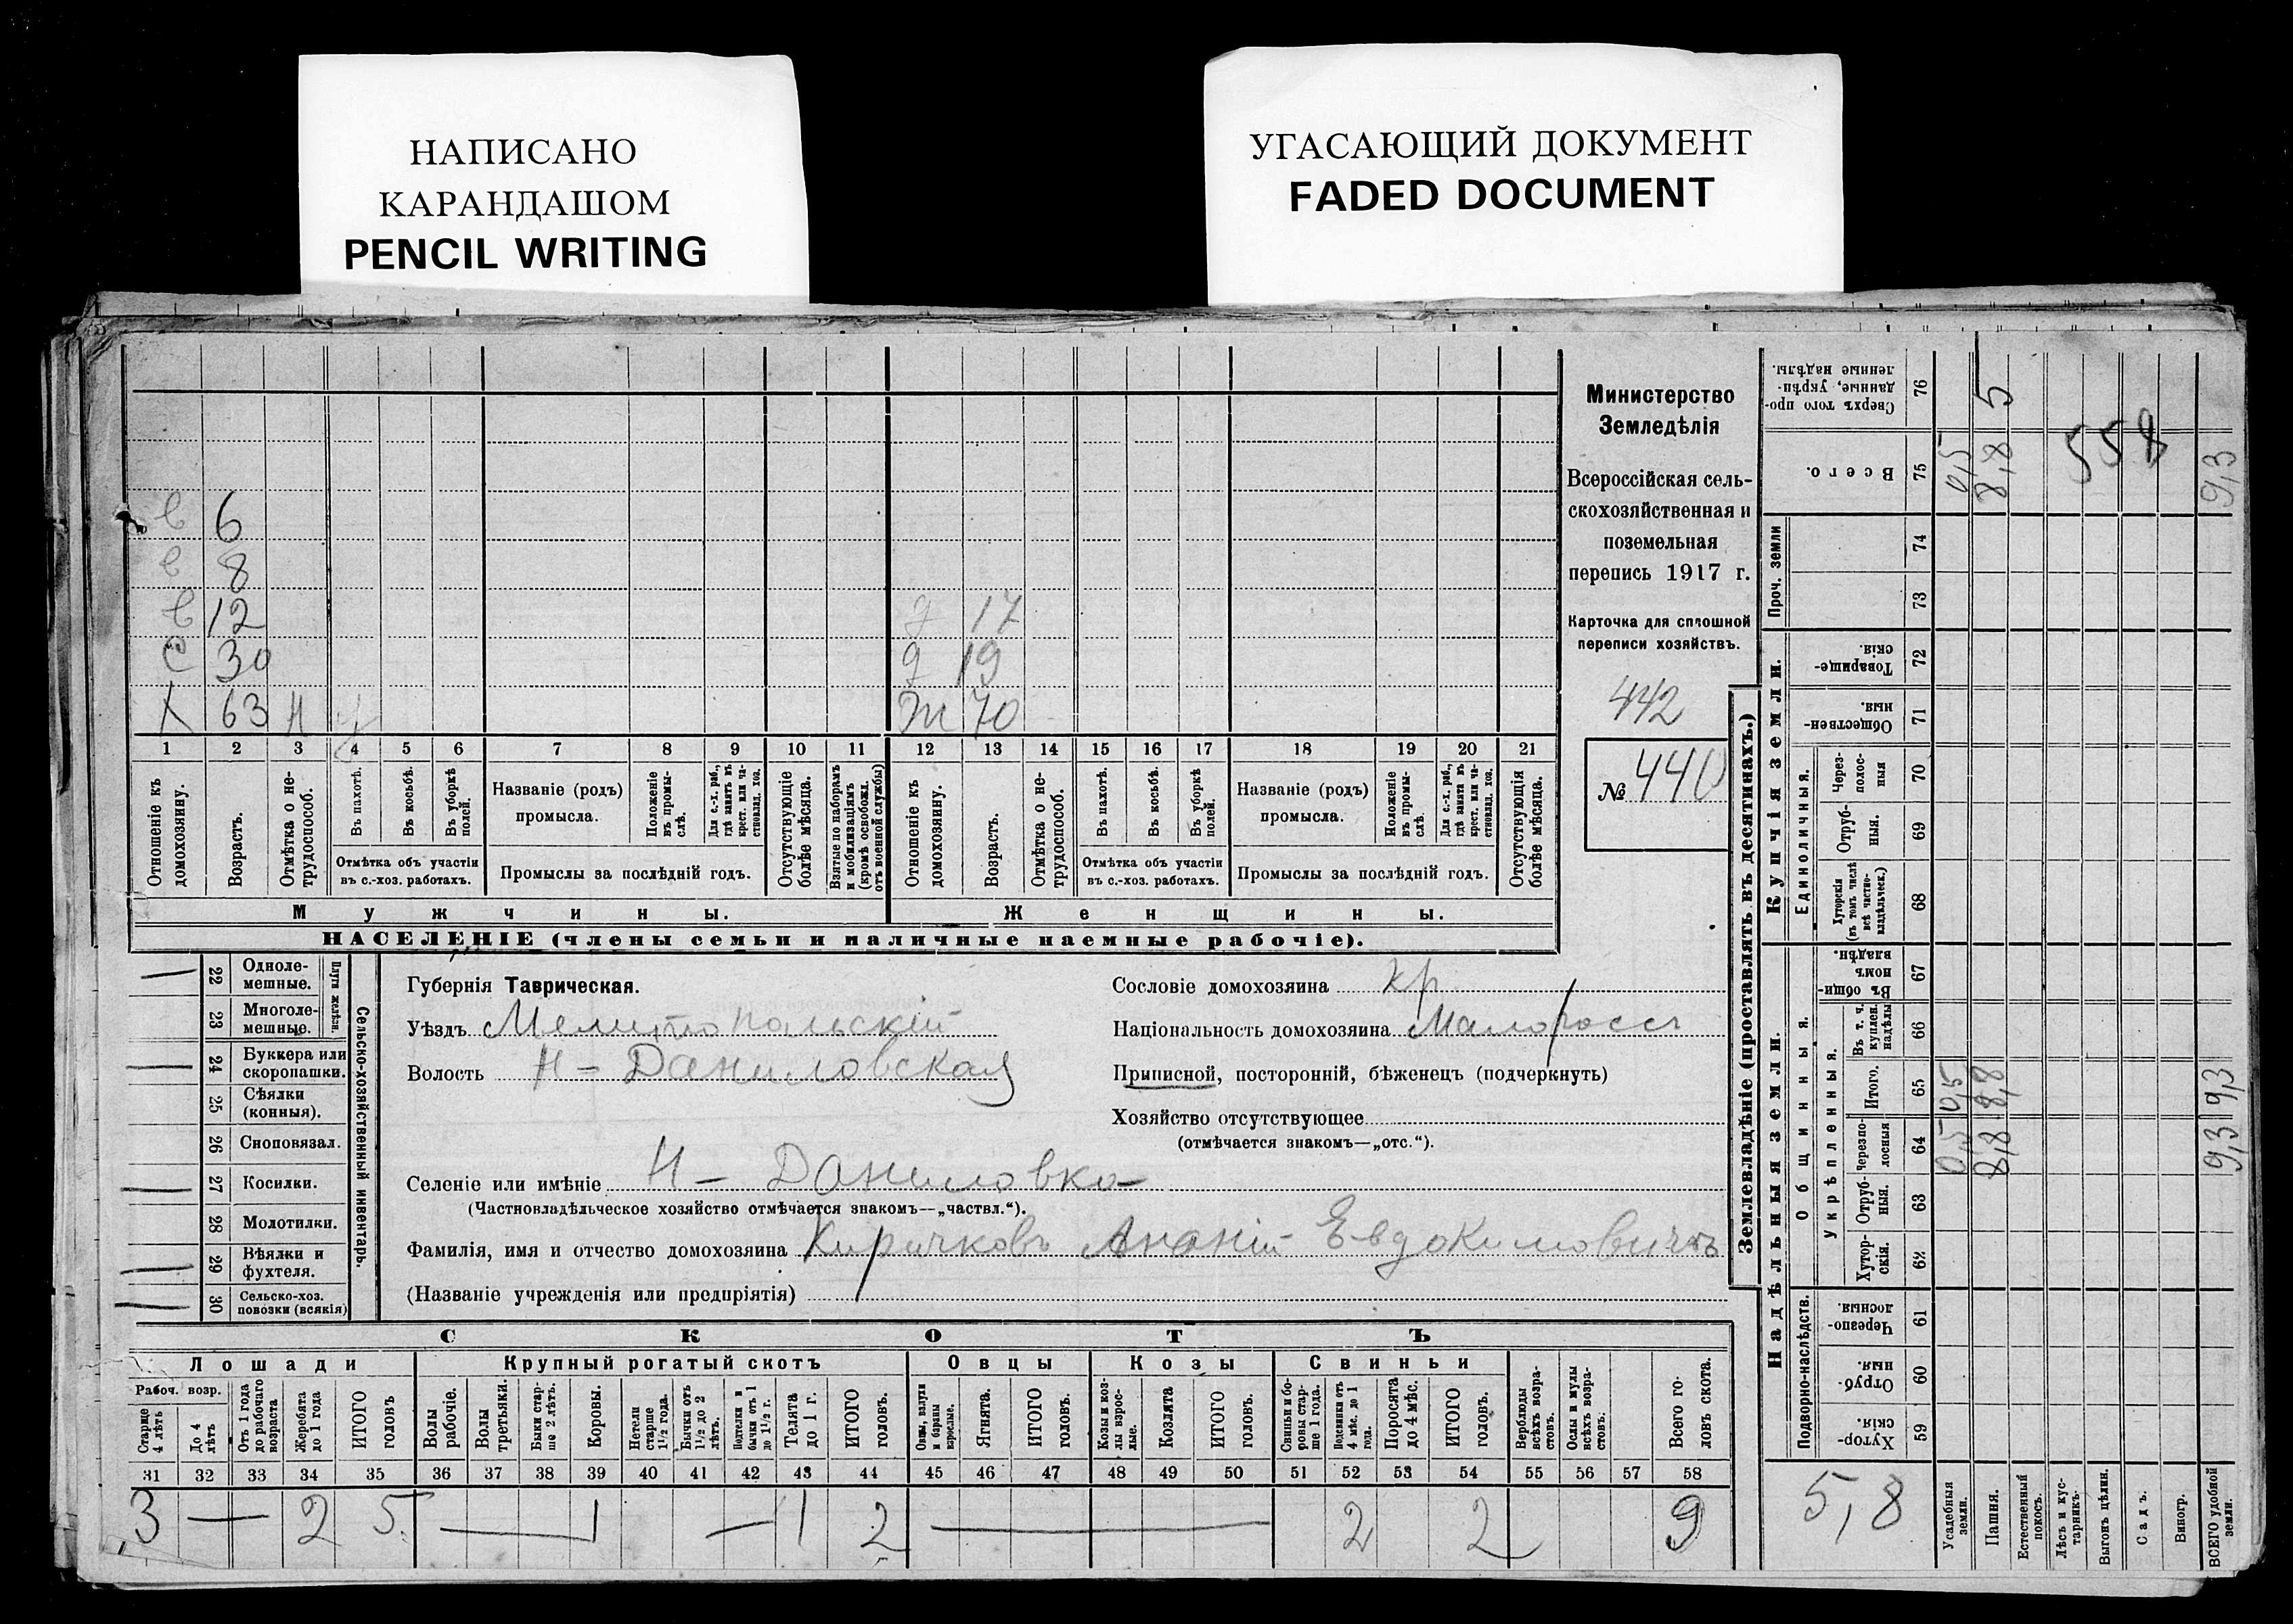 НАПИСАНО
КАРАНДАШОМ
PENCIL WRITING
УГАСАЮЩИЙ ДОКУМЕНТ
FADED DOCUMENT
в 6
в 8
в 12
с 30
Х 63 н
д 17
д 19
ж 70
1 2 3 4 5 6 7 8 9 10 11 12 13 14 15 16 17 18 19 20 21
Отношеніе къ домохозяину.
Возрастъ.
Отмѣтка о не-трудоспособ.
Въ пахотѣ.
Въ косьбѣ.
Въ уборкѣ полей.
Отмѣтка объ участіи
въ с.-хоз. работахъ.
Названіе (родъ)
промысла.
Положеніе въ промы-слѣ.
Для с.-х. раб., гдѣ занятъ въ крест. или ча-стновлад. хоз.
Промыслы за послѣдній годъ.
Отсутствующіе болѣе мѣсяца.
Взятые по наборамъ и мобилизаціямъ (кромѣ освобожд. отъ военной службы)
Отношеніе къ домохозяину.
Возрастъ.
Отмѣтка о не-трудоспособ.
Въ пахотѣ.
Въ косьбѣ.
Въ уборкѣ полей.
Отмѣтка объ участіи
въ с.-хоз. работахъ.
Названіе (родъ)
промысла.
Положеніе въ промы-слѣ.
Для с.-х. раб., гдѣ занята въ крест. или ча-стновлад. хоз.
Промыслы за послѣдній годъ.
Отсутствующія болѣе мѣсяца.
Мужчины.
Женщины.
НАСЕЛЕНІЕ (члены семьи и наличные наемные рабочіе).
Министерство
Земледѣлія
Всероссійская сель-
скохозяйственная и
поземельная
перепись 1917 г.
Карточка для сплошной
переписи хозяйствъ.
442
№ 440
22 Одноле-мешные.
23 Многоле-мешные.
Плуги желѣзн.
24 Буккера или скоропашки.
25 Сѣялки (конныя).
26 Сноповязал.
27 Косилки.
28 Молотилки.
29 Вѣялки и фухтеля.
30 Сельско-хоз. повозки (всякія)
Сельско-хозяйственный инвентарь.
Губернія Таврическая.
Уѣздъ Мелитопольскій
Волость Н-Даниловская
Селеніе или имѣніе Н-Даниловка
(Частновладѣльческое хозяйство отмѣчается знакомъ—„частвл.“).
Фамилія, имя и отчество домохозяина Киричковъ Ананій Евдокимовичъ
(Названіе учрежденія или предпріятія)
Сословіе домохозяина кр.
Національность домохозяина Малороссъ
Приписной, посторонній, бѣженецъ (подчеркнуть)
Хозяйство отсутствующее
(отмѣчается знакомъ—„отс.“).
СКОТЪ
Лошади
Крупный рогатый скотъ
Овцы
Козы
Свиньи
Рабоч. возр.
Старше 4 лѣтъ
До 4 лѣтъ
Отъ 1 года до рабочаго возраста
Жеребята до 1 года
ИТОГО головъ
Волы рабочіе.
Волы третьяки.
Быки стар-ше 2 лѣтъ.
Коровы.
Нетели старше 1½ года.
Бычки отъ 1½ до 2 лѣтъ.
Подтелки и бычки отъ 1 до 1½ г.
Телята до 1 г.
ИТОГО головъ.
Овцы, валухи и бараны взрослые.
Ягнята.
ИТОГО головъ.
Козы и коз-лы взрос-лые.
Козлята
ИТОГО головъ.
Свиньи и бо-ровы стар-ше 1 года.
Подсвинки отъ 4 мѣс. до 1 года.
Поросята до 4 мѣс.
ИТОГО головъ.
Верблюды всѣхъ возра-стовъ.
Ослы и мулы всѣхъ возра-стовъ.
Всего го-ловъ скота.
31 32 33 34 35 36 37 38 39 40 41 42 43 44 45 46 47 48 49 50 51 52 53 54 55 56 57 58
3 — 2 5 — 1 — 1 2 — 2 2 9
Землевладѣніе (проставлять въ десятинахъ.)
Сверхъ того про-данные, укрѣп-ленные надѣлы. 76 5
Всего. 75 0,5 8,8 9,3
558
Проч. земли
74
73
Купчія земли.
Товарище-скія. 72
Обществен-ныя. 71
Единоличныя.
Через-полос-ныя 70
Отруб-ныя. 69
Хуторскія (въ томъ числѣ всѣ частно-владѣльческ.) 68
Надѣльныя земли.
Общинныя.
Въ общи-номъ владѣн. 67
Укрѣпленныя.
Въ т. ч. куплен. надѣлы 66
Итого. 65 0,5 8,8 9,3
Черезпо-лосныя 64 0,5 8,8 9,3
Отруб-ныя. 63
Хутор-скія. 62
Подворно-наслѣдств.
Черезпо-лосныя. 61
Отруб-ныя. 60
Хутор-скія. 59
5,8
Усадебныя земли.
Пашня.
Естественный покосъ.
Лѣсъ и кус-тарникъ.
Выгонъ цѣлин.
Садъ.
Виногр.
ВСЕГО удобной земли.